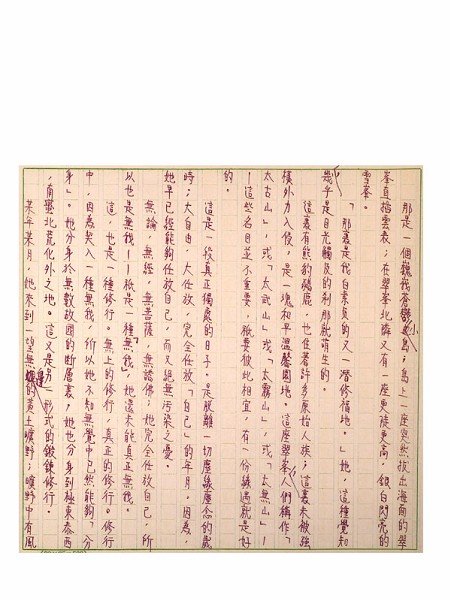 那是一個巍峨蒼鬱小島；島上一座突然拔出海面的翠
峯直插雲表；在翠峯北隣又有一座更徒更高，銀白閃亮的
雪峯。
「那裏是我白素貞的又一潛修福地。」她，這種覺知
幾乎是目光觸及的刹那就萌生的。
這裏有熊豹禍鹿，也住著許多原始人族；這裏未被強
橫外力入侵，是一塊和平溫馨園地。這座翠峯人們稱作「
太古山」，或「太武山」或「太霧山」，或「太無山」—
—這些名目並不重要，祇要彼此相宜，有一份緣遇就是好
的。
這是一段真正獨處的日子。是脫離一切塵緣塵念的歲
時；大自由，大任放，完全任放「自己」的年月，因為，
她早已經能夠任放自己，而又絕無污染之憂。
無論，無經，無菩薩，無諸佛；她完全任放自己，所
以也是無我——祇是一種「無我」，她還未能真正無我。
這，也是一種修行。無上的修行，真正的修行。修行
中，因為契入一種無我，所以她不知無覺中已然能夠「分
身」。她分身於無數故國的斷層裏，她也分身到極東泰西
，南蠻北荒化外之地。這又是另一形式的鍛鍊修行。
某年某月，她來到一望無邊的黃土曠野；曠野中有風